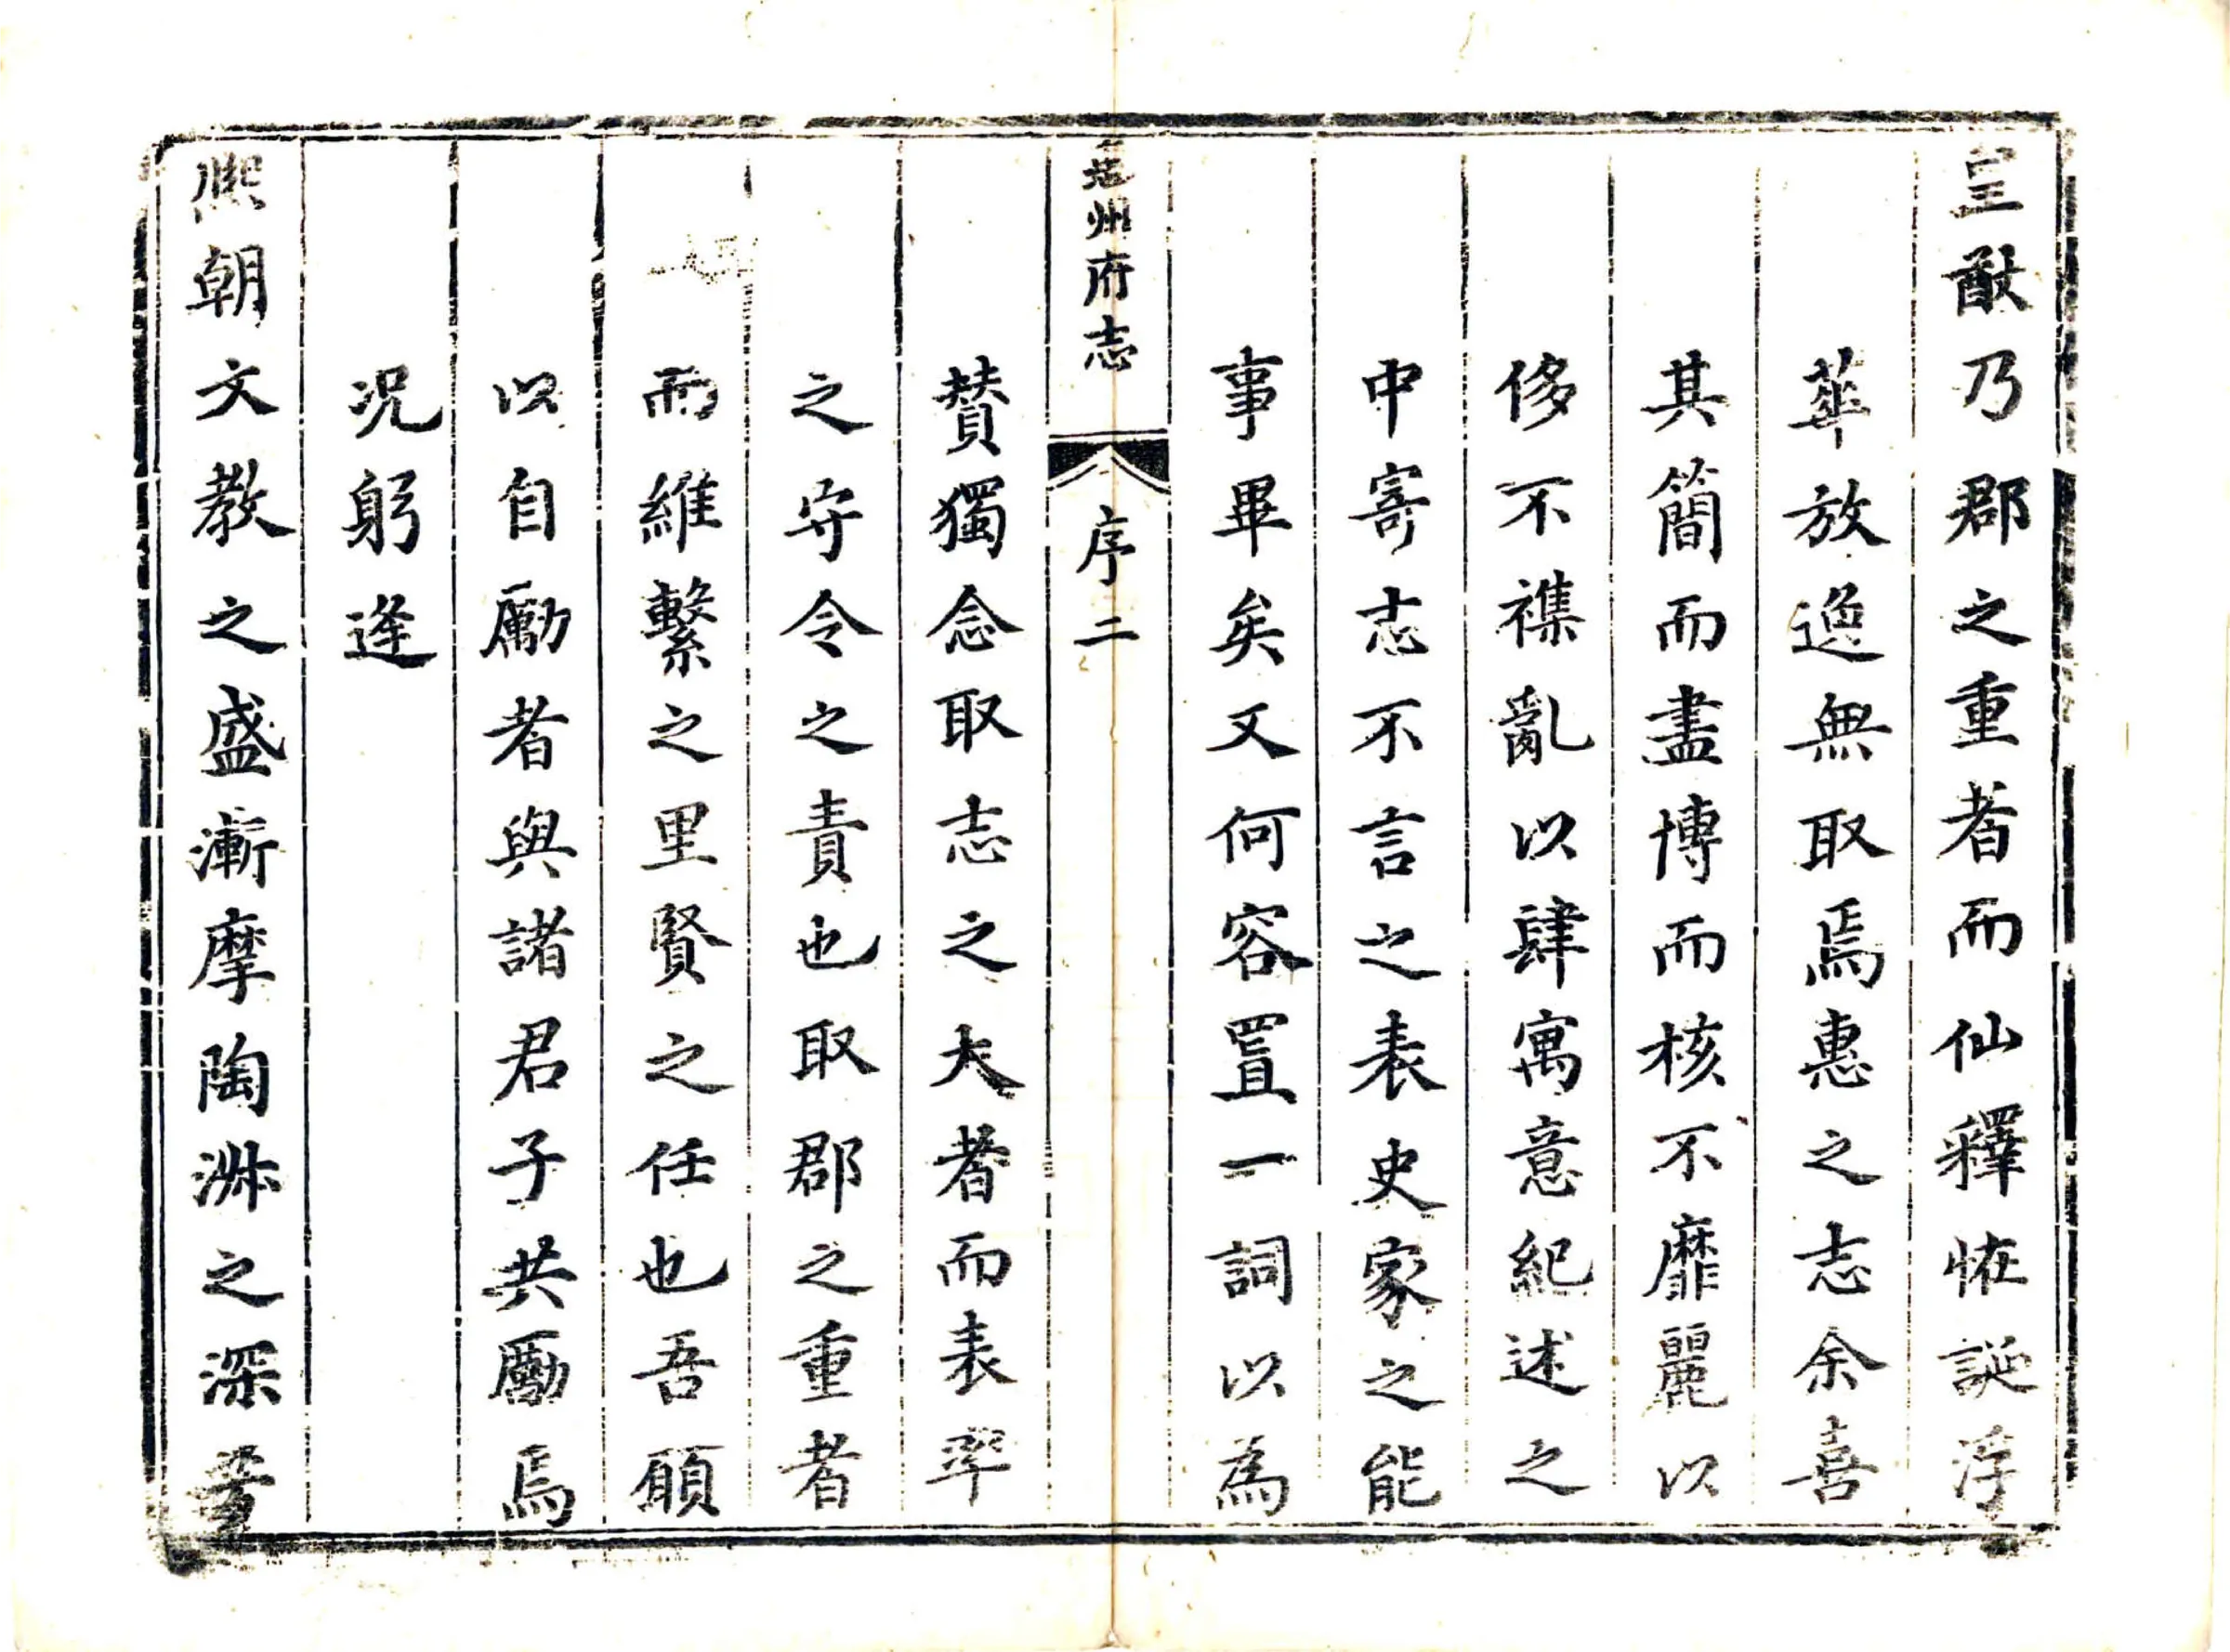 皇猷乃郡之重者而仙釋恠誕浮
華放逸無取焉惠之志余喜
其簡而盡博而核不靡麗以
侈不襍亂以肆寓意紀述之
中寄志不言之表史家之能
事畢矣又何容置一詞以為
州府志
序二
賛獨念取志之大者而表率
之守令之責也取郡之重者
而維繫之里賢之任也吾願
以自勵者與諸君子共勵焉
況躬逢
熙朝文教之盛漸摩陶淑之深